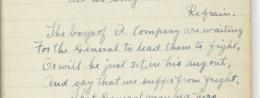 Refrain.
The boys of D. Company are waiting
For the General to lead them to fight,
Or will he just sit in his dug out,
And say that we suffer from fright,